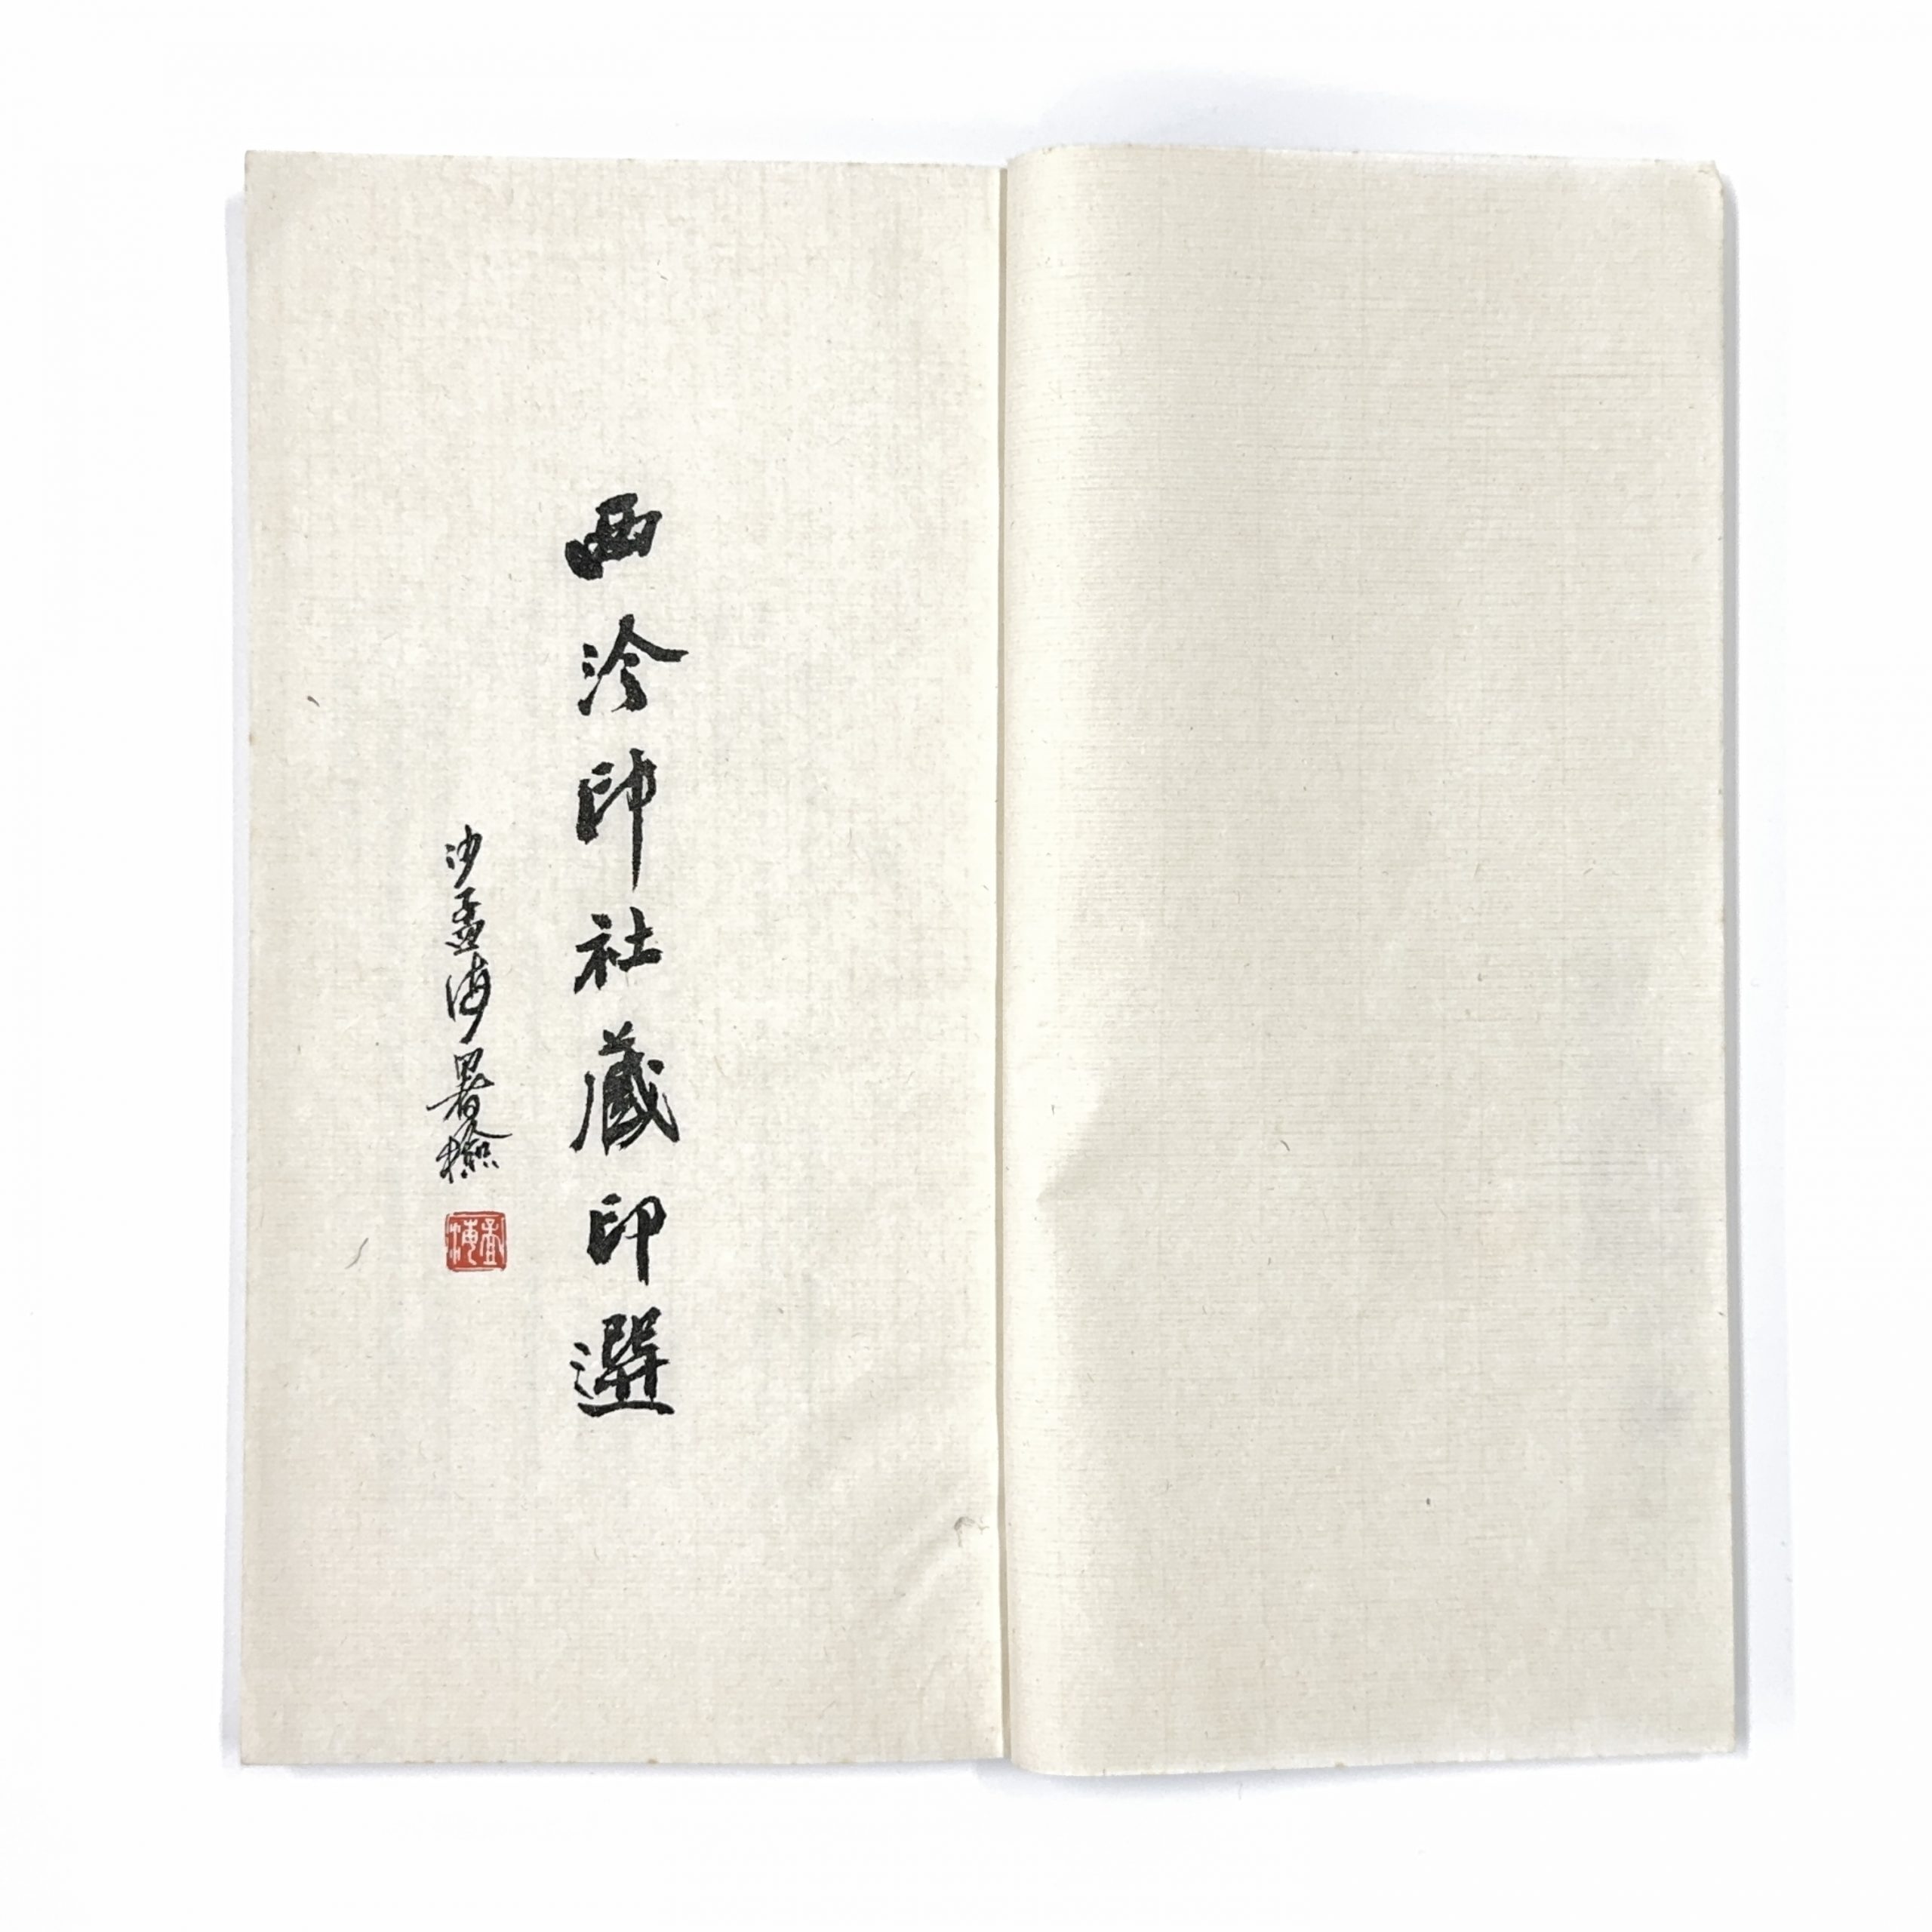 西泠印社藏印選
沙孟海署檢
孟海